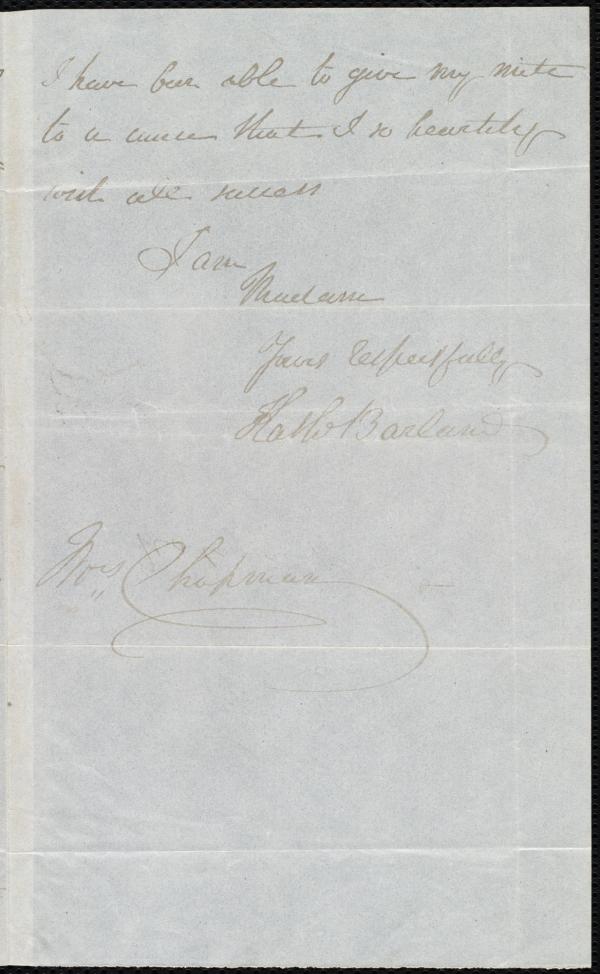 I have been able to give my mite
to a cause that I so heartily
wish all success
I am
Madam
Yours respectfully
Kath Barland
Mrs Chapman